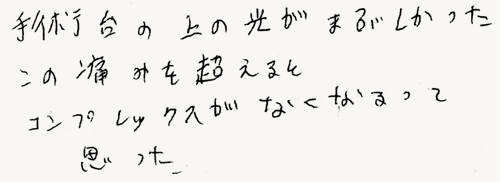 手術台の上の光がまぶしかった
この痛みを超えると
コンプレックスがなくなるって
思った